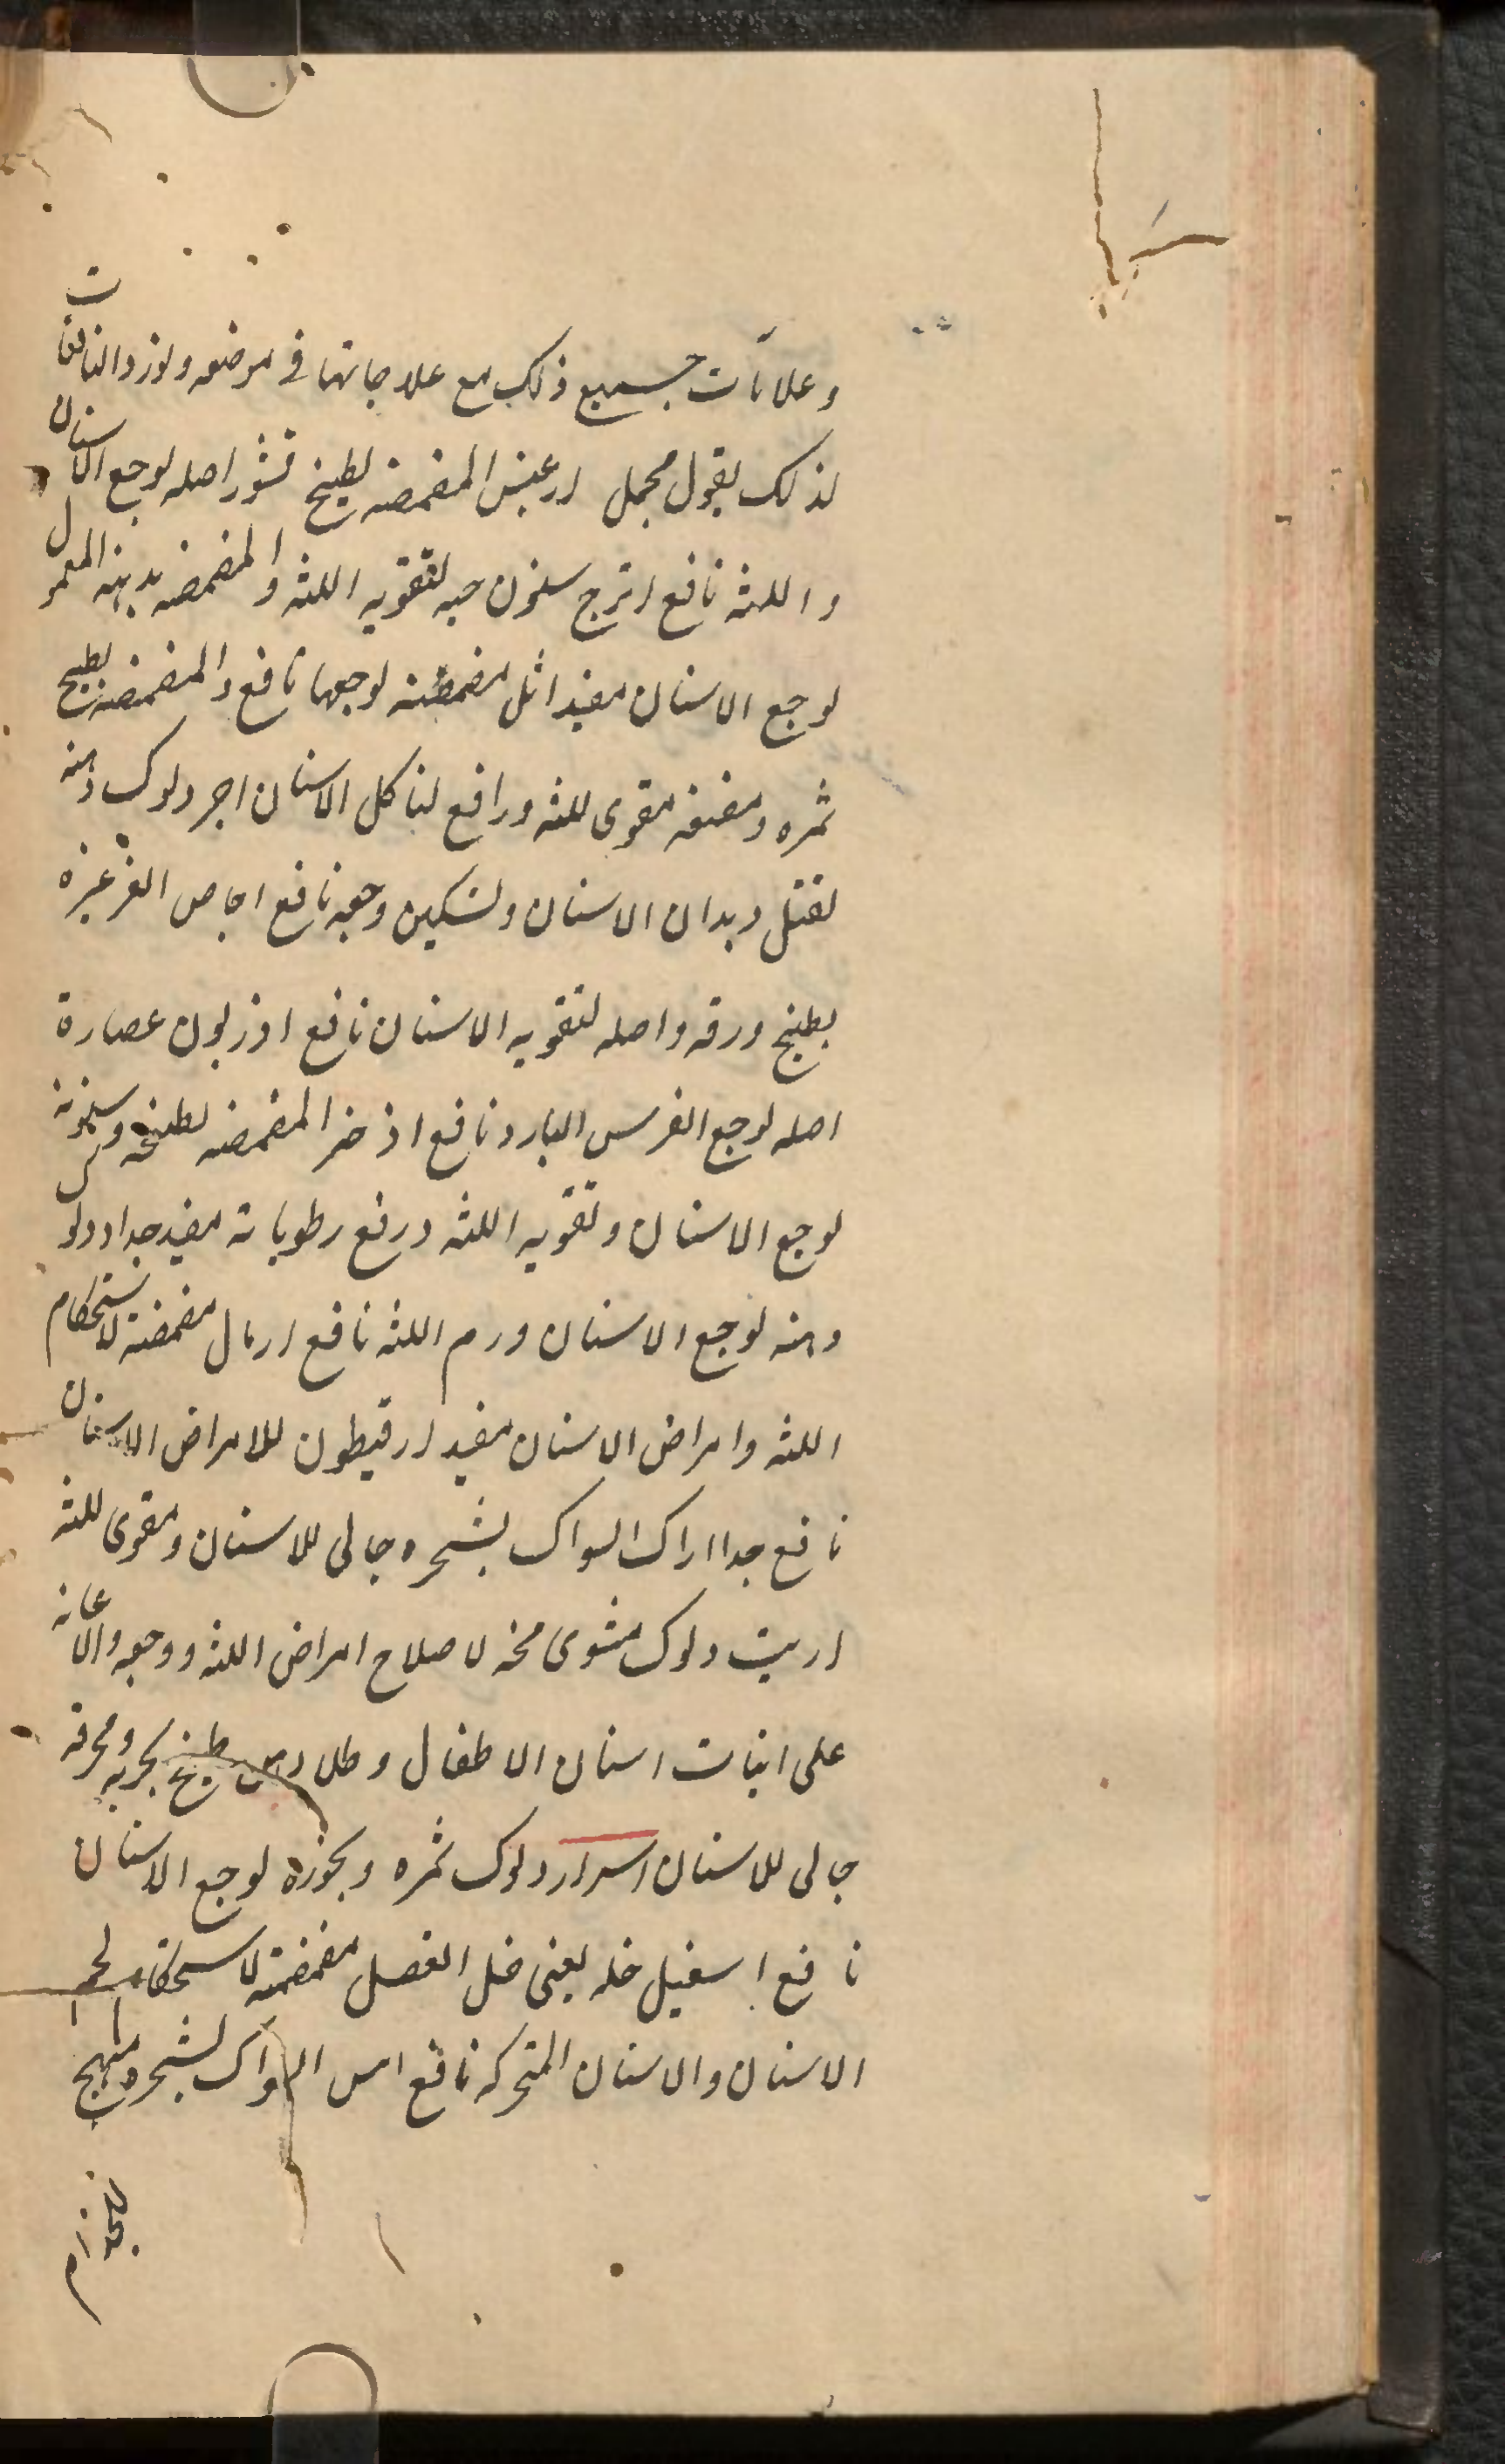 وعلامات جميع ذلك مع علاجاتها في موضعه ونورد النافعات
لذلك بقول مجمل ارغيس المضمضه بطبيخ قشور اصله لوجع الاسنان
واللثه نافع اترج سنون حبه لتقويه اللثه والمضمضه بدهنه المعمول
لوجع الاسنان مفيد اثل مضمضته لوجعها نافع والمضمضه بطبيخ
ثمره ومضغه مقوى للثه ورافع لتاكل الاسنان اجر دلوك دهنه
لقتل ديدان الاسنان وتسكين وجعه نافع اجاص الغرغره
بطبيخ ورقه واصله لتقويه الاسنان نافع اذربون عصارة
اصله لوجع الضرس البارد نافع اذخر المضمضه بطبيخه وسنونه
لوجع الاسنان وتقويه اللثه ورفع رطوباته مفيد جدا دلوك
دهنه لوجع الاسنان ورم اللثه نافع ارمال مضمضته لاستحكام
اللثه وامراض الاسنان مفيد ارقيطون للامراض الاسنان
نافع جدا اراك السواك بشجره جالى للاسنان ومقوى للثه
اربيت دلوك مشوى مخه لاصلاح امراض اللثه ووجعه والاعانه
على انبات اسنان الاطفال وطلا طبيخ بحريه ومحرقه
جالى للاسنان اسرار دلوك ثمره وبخوره لوجع الاسنان
نافع اسقيل خله يعنى خل العنصل مضمضته لاستحكام لحم
الاسنان والاسنان المتحركه نافع اس السواك بشجره مهيج
للجذام